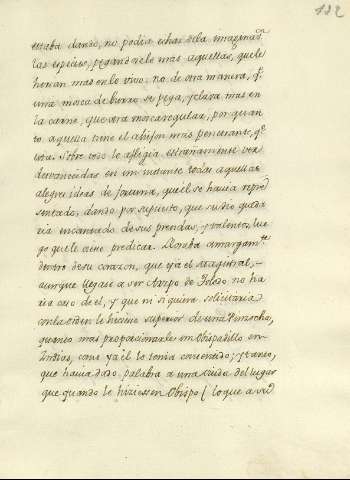 132
estaba dando, no podia echar dela imaginaⁿ
las especies, pegandosele mas aquellas, que le
herian mas en lo vivo: no de otra manera, qᵉ
una mosca de burro se pega, y clava mas en
la carne, que otra mosca regular, por quan
to aquella tiene el ahijon mas penetrante, qᵉ
otra. Sobre todo le afligia estrañamente ver
desvanecidas en un instante todas aquellas
alegres ideas de fortuna, que èl se havia repre
sentado, dando por supuesto, que su tio queda
ria encantado de sus prendas, y talentos, lue
go que le oiese predicar. Lloraba amargamᵗᵉ
dentro de su corazon, que yà el Magistral,
aunque llegase a ser Arzpo de Toledo no ha
ria caso de el, y que ni siquiera solicitaria
con la orden le hiciese superior de una
quanto mas proporcionarle un Obispadillo en
Indias, como yà èl lo tenia consentido; y tanto,
que havia dado palabra a una viuda del lugar
que quando le hiziessen Obispo (lo que a su